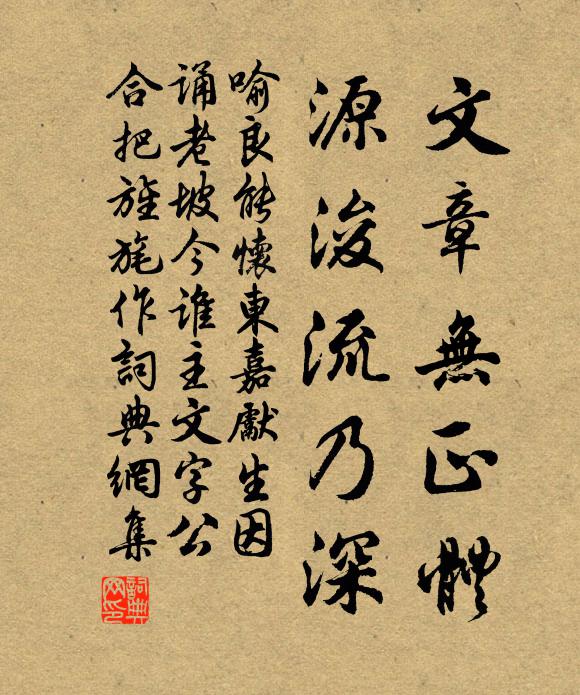 文章無正體
源浚流乃深
喻良能懷東嘉獻生因
誦老坡今誰主文字公
合把旌旄作詞典網集
詞典网印